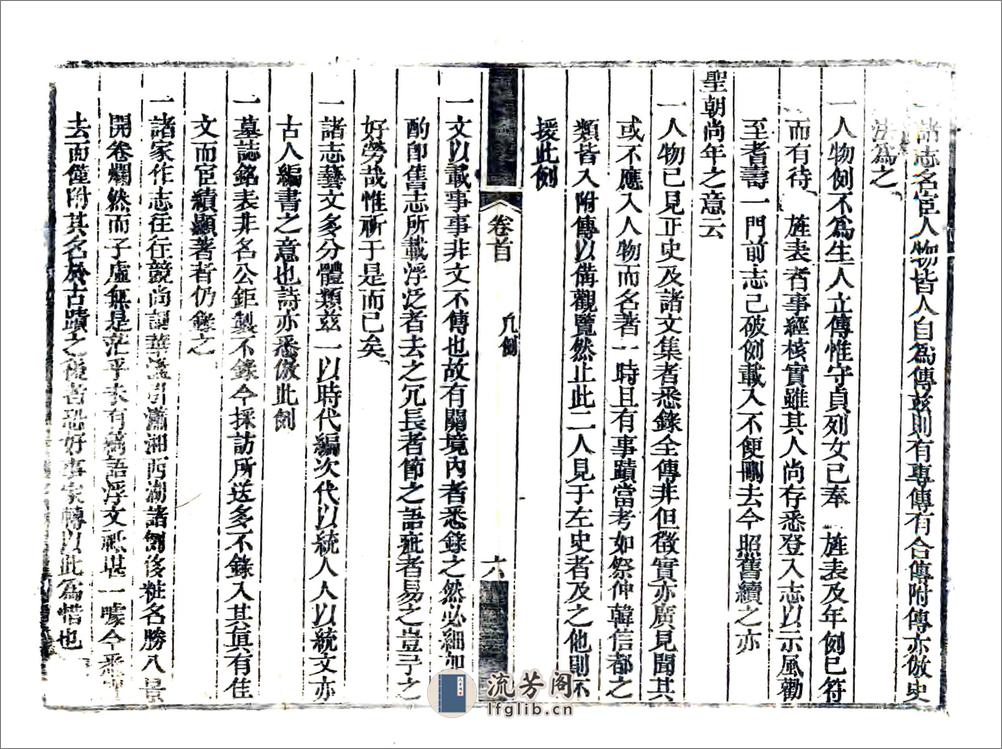 一諸志名宦人物皆人自為傳兹則有專傳有合傳附傳亦倣史
法為之
一人物例不為生人立傳惟守貞列女已奉　旌表及年例已符
而有待　旌表者事經核實雖其人尚存悉登入志以示風勸
至耆壽一門前志已破例載入不便刪去今照舊續之亦
聖朝尚年之意云
一人物已見正史及諸文集者悉錄全傳非但徵實亦廣見聞其
或不應入人物而名著一時且有事蹟當考如祭仲韓信都之
類皆入附傳以備觀覽然止此二人見于左史者及之他則不
援此例
卷首　凡例　六
一文以載事事非文不傳也故有關境内者悉錄之然必細加
酌卽舊志所載浮泛者去之冗長者節之語疵者易之豈予之
好勞哉惟祈于是而已矣
一諸志藝文多分體類兹一以時代編次代以統人人以統文亦
古人編書之意也詩亦悉倣此例
一墓誌銘表非名公鉅製不錄今採訪所送多不錄入其眞有佳
文而臣績顯著者仍錄之
一諸家作志往往競尚詞華濫引瀟湘西湖諸例後粧名勝八景
開卷爛然而子虛無是茫乎未有寓語浮文祗堪一噱今悉
去而僅附其名於古蹟之後吾恐好事家轉以此為惜也
流芳阁
lfglib.cn